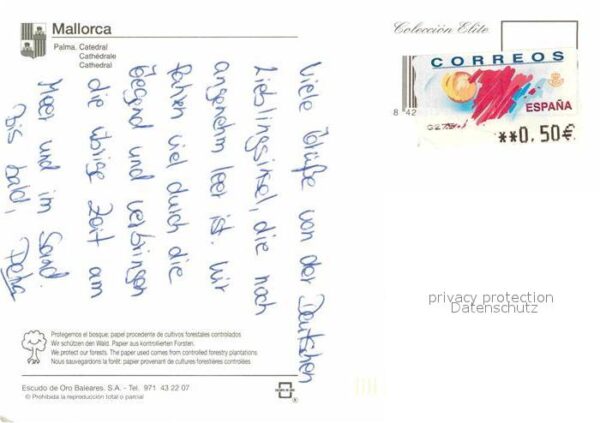 Mallorca
Palma. Catedral
Cathédrale
Cathedral
Colección Elite
CORREOS
ESPAÑA
**0,50€
8 42
Viele Grüße von der Deutschen
Lieblingsinsel, die noch
angenehm leer ist. Wir
fahren viel durch die
Gegend und verbringen
die übrige Zeit am
Meer und im Sand.
Bis bald,
privacy protection
Datenschutz
Protegemos el bosque: papel procedente de cultivos forestales controlados
Wir schützen den Wald. Papier aus kontrollierten Forsten.
We protect our forests. The paper used comes from controlled forestry plantations
Nous sauvegardons la forêt: papier provenant de cultures forestières contrôlées
Escudo de Oro Baleares. S.A. - Tel. 971 43 22 07
© Prohibida la reproducción total o parcial